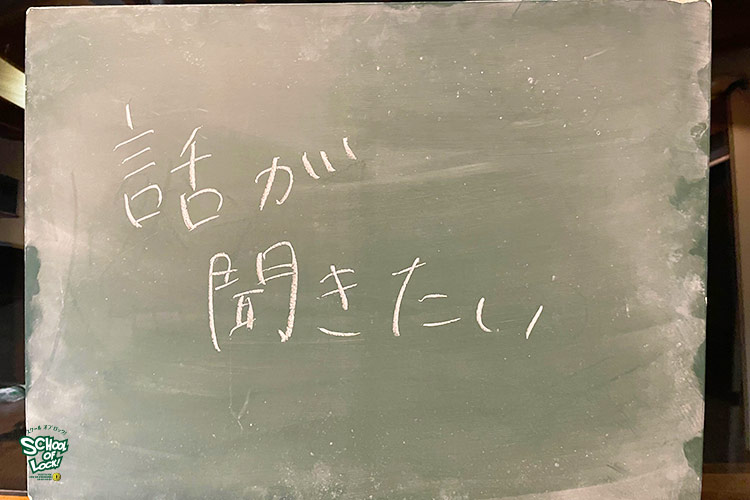 話が
聞きたい
スクール オブ ロック!
SCHOOL
OF
LOCK!